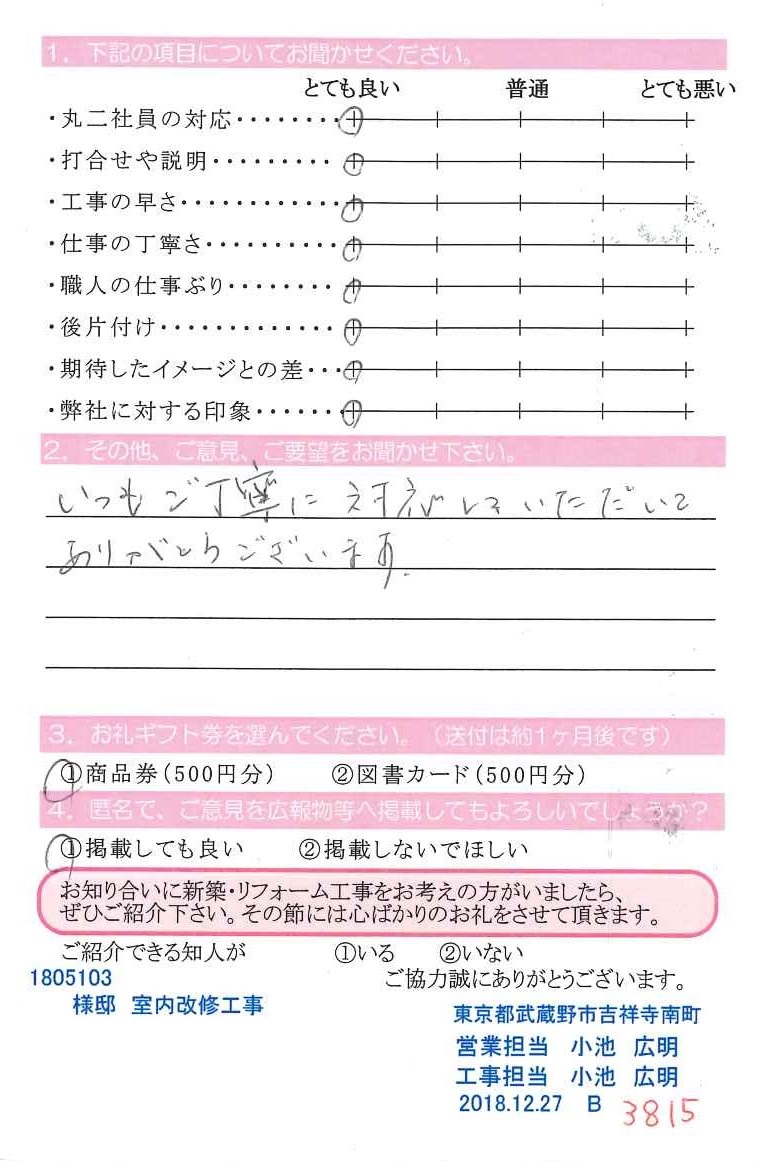 1. 下記の項目についてお聞かせください。
とても良い 普通 とても悪い
・丸二社員の対応・・・・・・・
・打合せや説明・・・・・・・・・
・工事の早さ・・・・・・・・・・・
・仕事の丁寧さ・・・・・・・・・・
・職人の仕事ぶり・・・・・・・・
・後片付け・・・・・・・・・・・・・
・期待したイメージとの差・・・
・弊社に対する印象・・・・・・
2. その他、ご意見、ご要望をお聞かせ下さい。
いつもご丁寧に対応していただいて
ありがとうございます.
3. お礼ギフト券を選んでください。（送付は約1ヶ月後です）
①商品券(500円分) ②図書カード(500円分)
4. 匿名で、ご意見を広報物等へ掲載してもよろしいでしょうか？
①掲載しても良い ②掲載しないでほしい
お知り合いに新築・リフォーム工事をお考えの方がいましたら、
ぜひご紹介下さい。その節には心ばかりのお礼をさせて頂きます。
ご紹介できる知人が ①いる ②いない
ご協力誠にありがとうございます。
1805103
様邸 室内改修工事
東京都武蔵野市吉祥寺南町
営業担当 小池 広明
工事担当 小池 広明
2018.12.27 B 3815